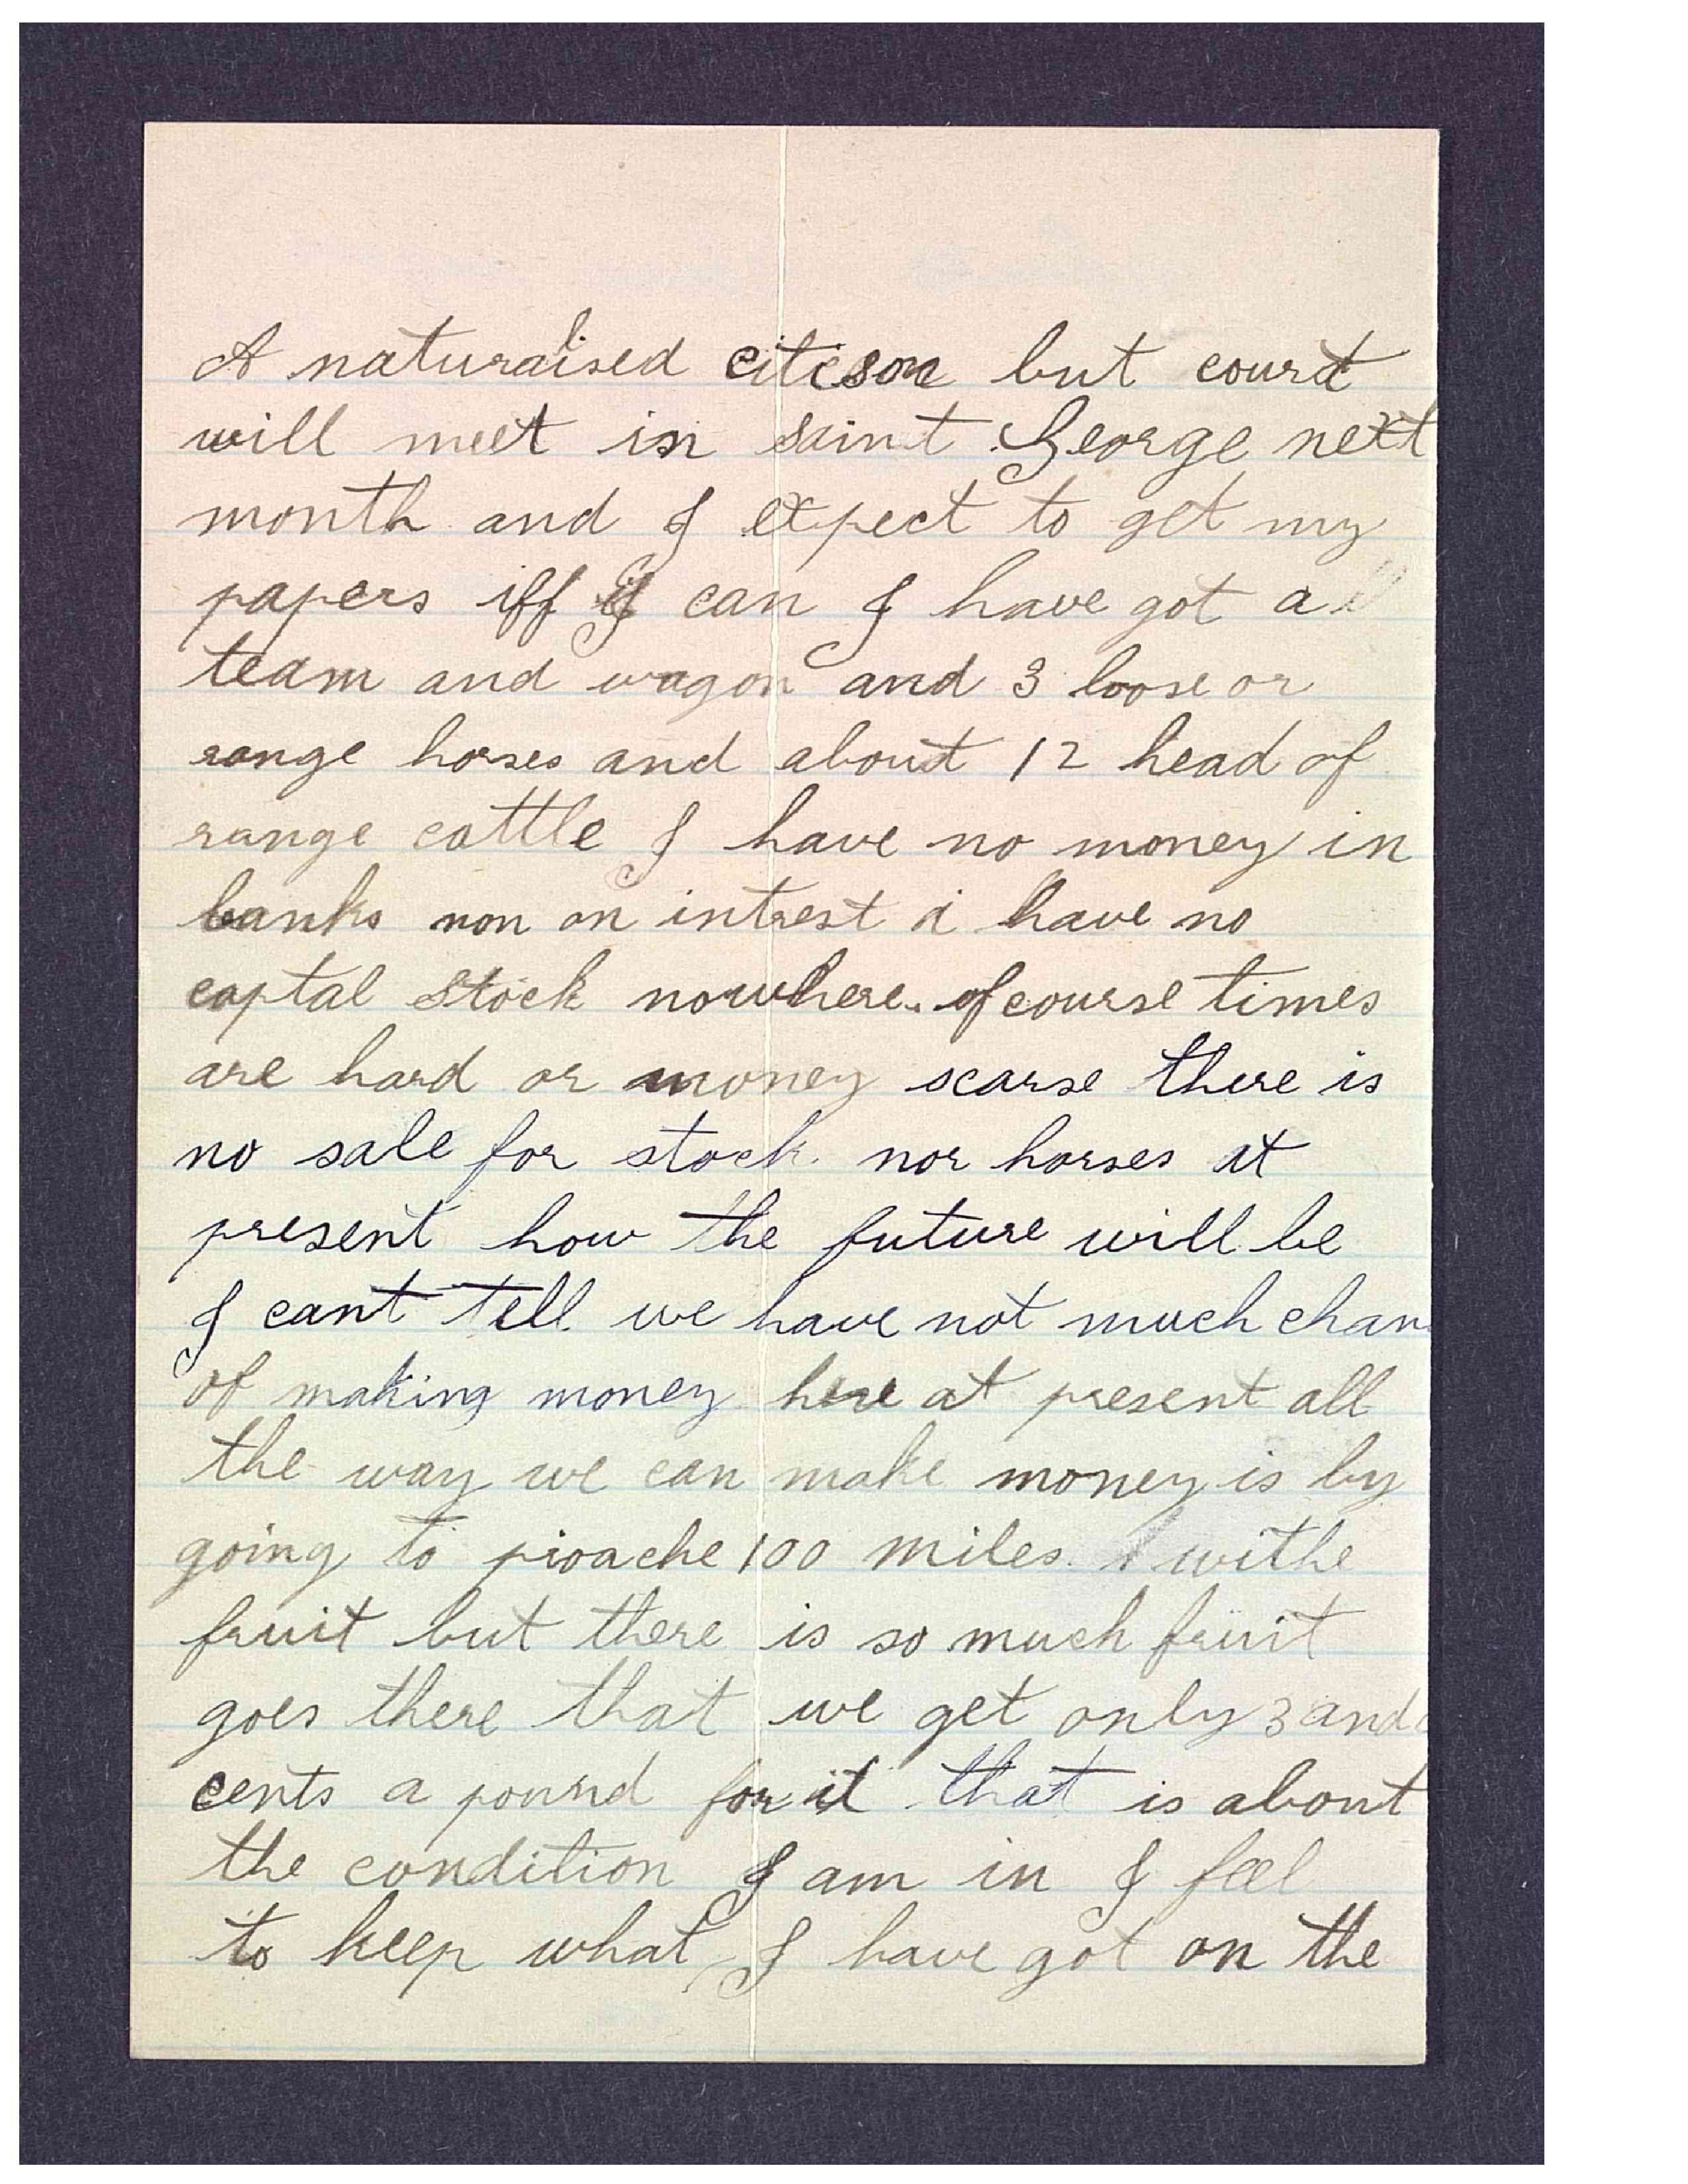 A naturalised citeson but court
will meet in saint George next
month and I expect to get my
papers iff I can I have got a
team and wagon and 3 loose or
range horses and about 12 head of
range cattle I have no money in
banks non on intrest i have no
captal stock nowhere. of course times
are hard or money scarse there is
no sale for stock. nor horses at
present how the future will be
I cant tell we have not much chan
of making money here at present all
the way we can make money is by
going to pioache 100 miles withe
fruit but there is so much fruit
goes there that we get only 3 and
cents a pound for it that is about
the condition I am in I feel
to keep what I have got on the